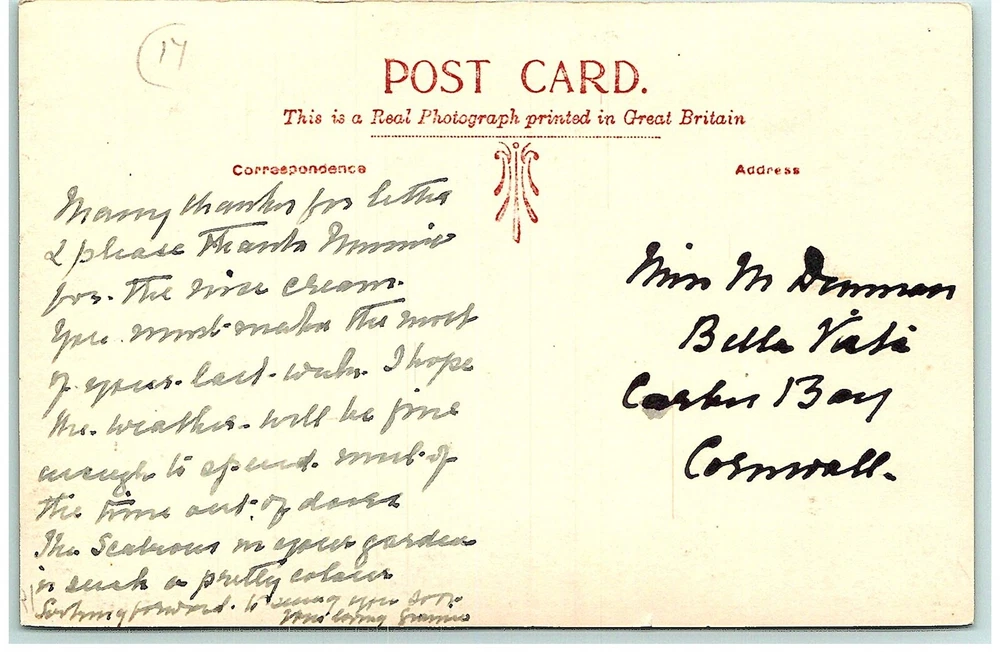 17
POST CARD.
This is a Real Photograph printed in Great Britain
Correspondence
Address
Many thanks for letter
& please thank Mummie
for the nice cream.
You must make the most
of your last week. I hope
the weather will be fine
enough to spend most of
the time out of doors
The Scabious in your garden
is such a pretty colour
Looking forward to seeing you soon
Your loving Grannie
Miss M Denman
Bella Vista
Carbis Bay
Cornwall.